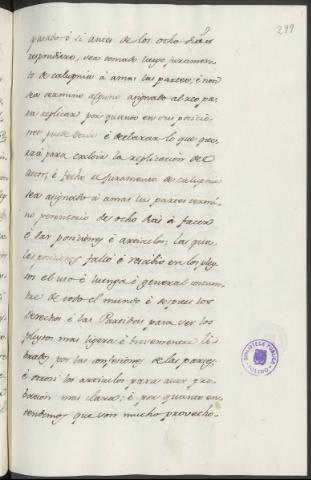 299
pasado é si antes de los ocho dias
respondiere, sea tomado luego juramen-
to de calupnia á amas las partes; é non
sea termino alguno asignado al reo pa-
ra replicar por quanto en sus posicio-
nes puede decir é declarar lo que que-
rrá para excluir la replicacion del
actor, é fecho el juramento de calupnia
sea asignado á amas las partes termi-
no perentorio de ocho dias á facer
é dar posiciones é articulos; las qua-
les posiciones falló é rescibió en los pley-
tos el uso é luenga é general costum-
bre de todo el mundo é despues los
derechos é las Partidas para ser los
Pleytos mas ligera é brevemente li-
brados por las confesiones de las partes,
é otrosi los articulos para aver pro-
bacion mas clara; é por quanto en-
tendemos que son mucho provecho-
BIBLIOTECA PUBLICA
TOLEDO